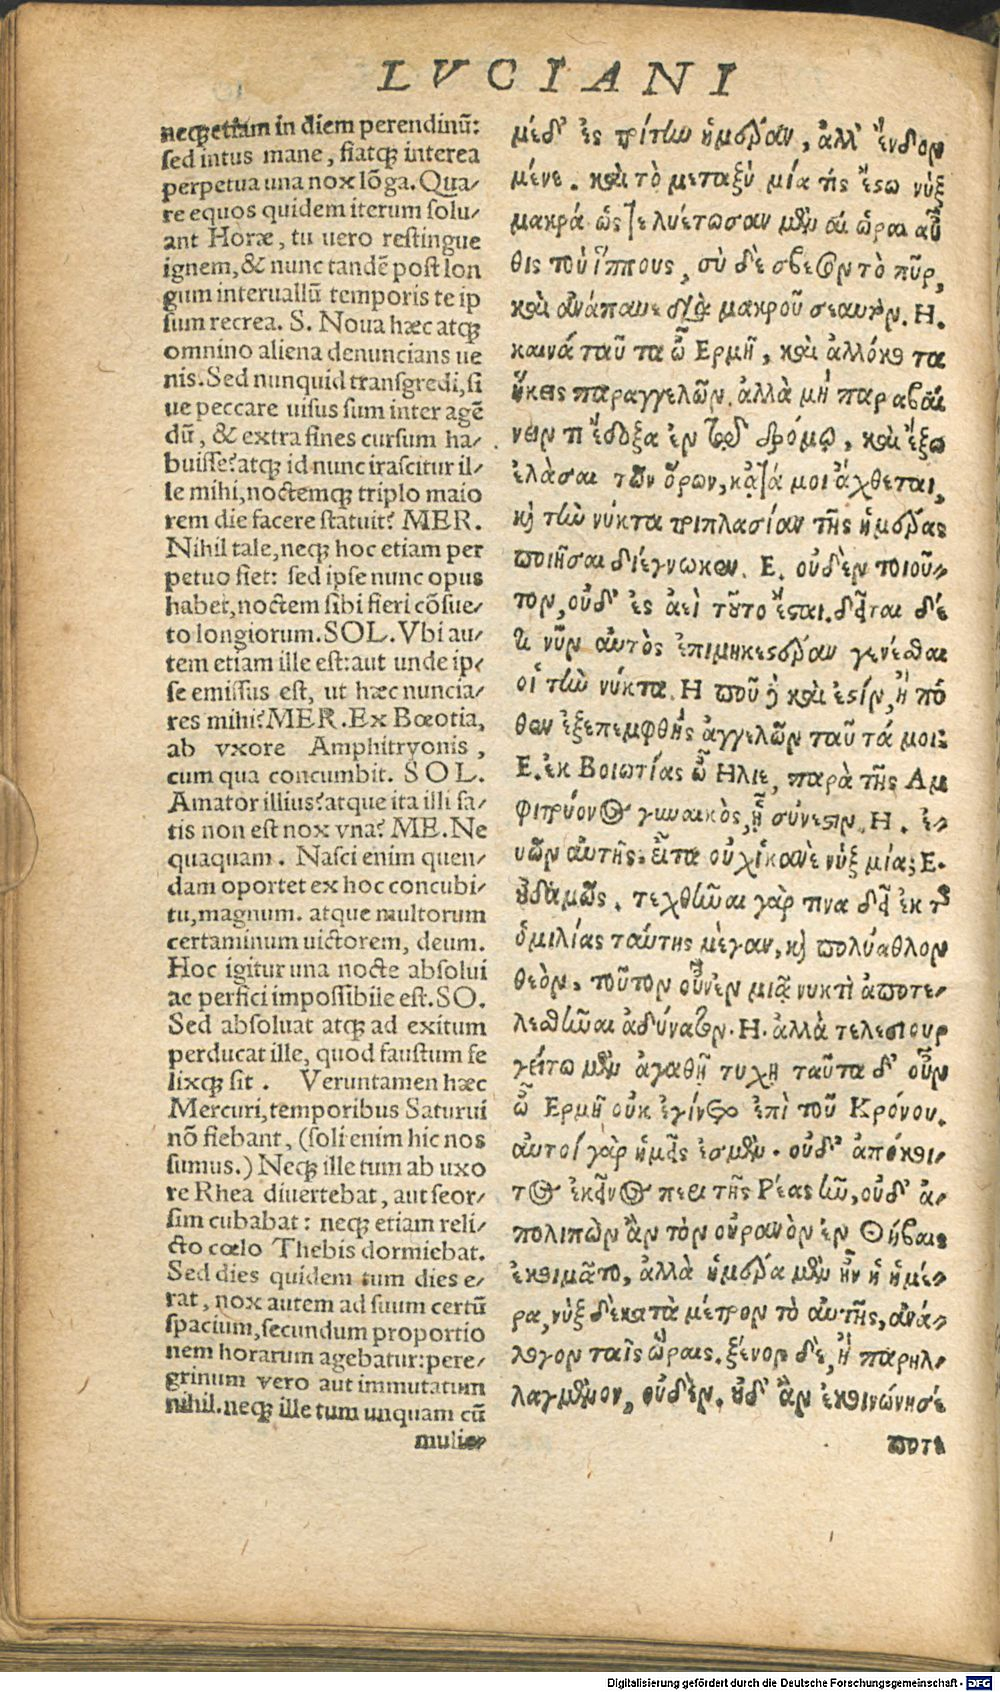 LVCIANI
neqꝫ etiam in diem perendinũ:
sed intus mane, fiatqꝫ interea
perpetua una nox lõga. Qua-
re equos quidem iterum solu-
ant Horæ, tu uero restingue
ignem, & nunc tandẽ post lon
gum interuallũ temporis te ip
sum recrea. S. Noua hæc atqꝫ
omnino aliena denuncians ue
nis. Sed nunquid transgredi, si
ue peccare uisus sum inter agẽ
dũ, & extra fines cursum ha-
buisse? atqꝫ id nunc irascitur il-
le mihi, noctemqꝫ triplo maio
rem die facere statuit? MER.
Nihil tale, neqꝫ hoc etiam per
petuo fiet: sed ipse nunc opus
habet, noctem sibi fieri cõsue-
to longiorum. SOL. Vbi au-
tem etiam ille est: aut unde ip-
se emissus est, ut hæc nuncia-
res mihi? MER. Ex Bœotia,
ab vxore Amphitryonis,
cum qua concumbit. SOL.
Amator illius? atque ita illi sa-
tis non est nox vna? ME. Ne
quaquam. Nasci enim quen-
dam oportet ex hoc concubi-
tu, magnum. atque multorum
certaminum uictorem, deum.
Hoc igitur una nocte absolui
ac perfici impossibile est. SO.
Sed absoluat atqꝫ ad exitum
perducat ille, quod faustum fe
lixqꝫ sit. Veruntamen hæc
Mercuri, temporibus Saturui
nõ fiebant, (soli enim hic nos
sumus.) Neqꝫ ille tum ab uxo
re Rhea diuertebat, aut seor-
sim cubabat: neqꝫ etiam reli-
cto cœlo Thebis dormiebat.
Sed dies quidem tum dies e-
rat, nox autem ad suum certũ
spacium, secundum proportio
nem horarum agebatur: pere-
grinum vero aut immutatum
nihil. neqꝫ ille tum unquam cũ
mulie-
μέδ' ἐς τρίτην ἡμέραν, ἀλλ' ἔνδον
μένε. καὶ τὸ μεταξὺ μία τὶς ἔσω νὺξ
μακρά. ὥστε λυέτωσαν μὲν αἱ ὧραι αὖ
θις τοὺς ἵππους, σὺ δὲ σβέσον τὸ πῦρ,
καὶ ἀνάπαυε διὰ μακροῦ σεαυτόν. Η.
καινὰ ταῦτα ὦ Ερμῆ, καὶ ἀλλόκοτα
ἥκεις παραγγελῶν. ἀλλὰ μὴ παραβαί
νειν τι ἔδοξα ἐν τῷ δρόμῳ, καὶ ἔξω
ἐλάσαι τῶν ὅρων, κᾆτά μοι ἄχθεται,
κὶ τὴν νύκτα τριπλασίαν τῆς ἡμέρας
ποιῆσαι διέγνωκεν. Ε. οὐδὲν τοιοῦ-
τον, οὐδ' ἐς ἀεὶ τοῦτο ἔσται. δεῖται δέ
τι νῦν αὐτὸς ἐπιμηκεστέραν γενέσθαι
οἱ τὴν νύκτα. Η ποῦ δὲ καὶ ἐστίν, ἢ πό
θεν ἐξεπεμφθης ἀγγελῶν ταῦτά μοι;
Ε. ἐκ Βοιωτίας ὦ Ηλιε, παρὰ τῆς Αμ
φιτρύονος γυναικὸς, ᾗ σύνεστιν. Η. ἐ-
ρῶν αὐτῆς. εἶτα οὐχ ἱκανὴ νὺξ μία; Ε.
οὐδαμῶς. τεχθῆναι γὰρ τινα δεῖ ἐκ τῆς
ὁμιλίας ταύτης μέγαν, κὶ πολύαθλον
θεὸν. τοῦτον οὖν ἐν μιᾷ νυκτὶ ἀποτε-
λεσθῆναι ἀδύνατον. Η. ἀλλὰ τελεσιουρ
γείτω μὲν ἀγαθῇ τυχῃ ταῦτα δ' οὖν
ὦ Ερμῆ οὐκ ἐγίνετο ἐπὶ τοῦ Κρόνου.
αὐτοὶ γὰρ ἡμεῖς ἐσμὲν. οὐδ' ἀπόκοι-
τος ἐκεῖνος περὶ τῆς Ρέας ἦν, οὐδ' ἀ-
πολιπὼν ἂν τὸν οὐρανὸν ἐν Θήβαις
ἐκοιμᾶτο, ἀλλὰ ἡμέρα μὲν ἦν ἡ ἡμέ-
ρα, νὺξ δὲ κατὰ μέτρον τὸ αὐτῆς, ἀνά-
λογον ταῖς ὥραις. ξένον δὲ, ἢ παρηλ-
λαγμένον, οὐδὲν. οὐδ' ἂν ἐκοινώνησέ
ποτε
Digitalisierung gefördert durch die Deutsche Forschungsgemeinschaft - DFG